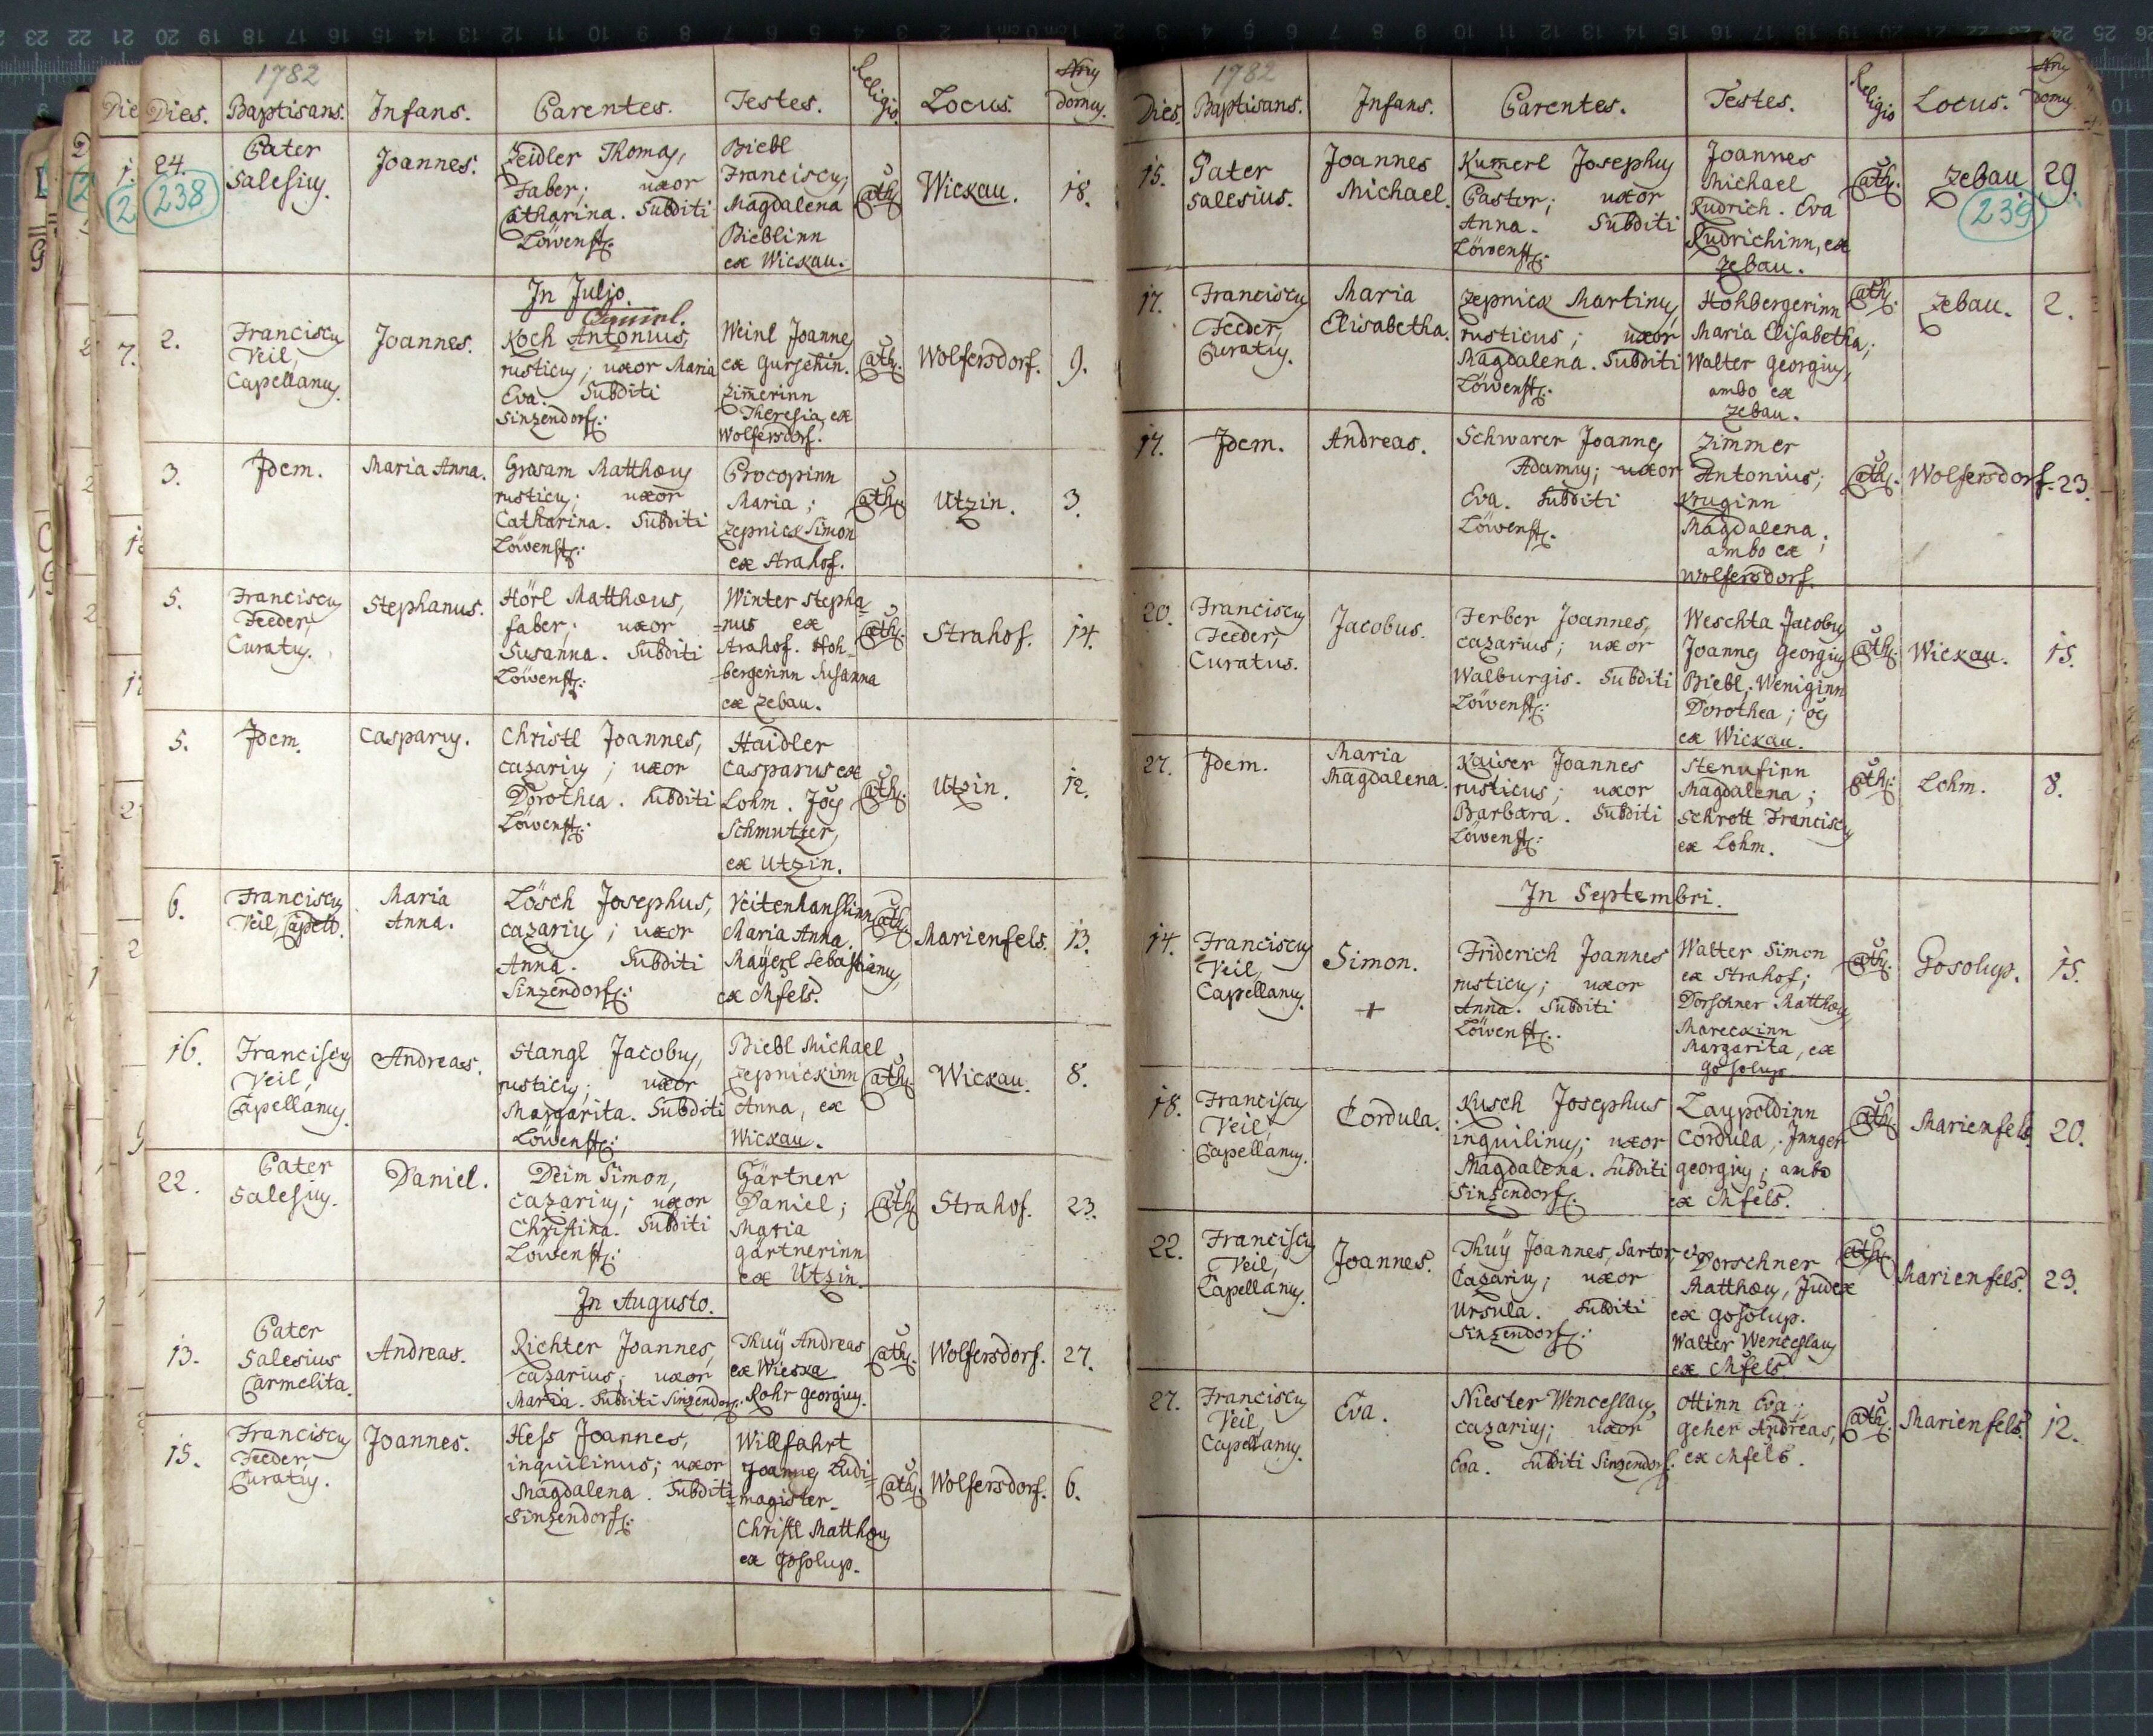 1782
Dies. Baptisans. Infans. Parentes. Testes. Religio Locus. Nrus domus.
24.
238
Pater
Salesius.
Joannes.
Zeidler Thomas,
Faber; uxor
Catharina. Subditi
Löwenst:
Biebl
Franciscus;
Magdalena
Bieblinn
ex Wickau.
Cath.
Wickau.
18.
In Julio.
2.
Franciscus
Veil,
Capellanus.
Joannes.
Koch Antonius,
rusticus; uxor Maria
Eva. Subditi
Sinzendorf:
Weinl Joannes
ex Gurschin.
Zim̅erinn
Theresia, ex
Wolfersdorf.
Cath.
Wolfersdorf.
9.
3.
Idem.
Maria Anna.
Grasam Matthæus
rusticus; uxor
Catharina. Subditi
Löwenst:
Procopinn
Maria;
Zepnick Simon
ex Strahof.
Cath.
Utzin.
3.
5.
Franciscus
Feeder,
Curatus.
Stephanus.
Hörl Matthæus,
faber; uxor
Susanna. Subditi
Löwenst:
Winter Stepha
=nus ex
Strahof. Hoh-
-bergerinn Susanna
ex Zebau.
Cath.
Strahof.
14.
5.
Idem.
Casparus.
Christl Joannes,
cazarius; uxor
Dorothea. Subditi
Löwenst:
Haidler
Casparus ex
Lohm. Joes
Schmutzer,
ex Utzin.
Cath.
Utzin.
12.
6.
Franciscus
Veil, Capell.
Maria
Anna.
Lösch Josephus,
cazarius; uxor
Anna. Subditi
Sinzendorf:
Veitenhanslinn
Maria Anna.
Mayerl Sebastianus,
ex Mfels.
Cath.
Marienfels.
13.
16.
Franciscus
Veil,
Capellanus.
Andreas.
Stangl Jacobus,
rusticus; uxor
Margarita. Subditi
Löwenst:
Biebl Michael
Zepnickinn
Anna, ex
Wickau.
Cath.
Wickau.
8.
22.
Pater
Salesius.
Daniel.
Deim Simon,
cazarius; uxor
Christina. Subditi
Löwenst:
Gärtner
Daniel;
Maria
gärtnerinn
ex Utzin.
Cath.
Strahof.
23.
In Augusto.
13.
Pater
Salesius
Carmelita.
Andreas.
Richter Joannes,
cazarius; uxor
Maria. Subditi Sinzendorf:
Thuÿ Andreas
ex Wieska
Rohr Georgius.
Cath.
Wolfersdorf.
27.
15.
Franciscus
Feeder,
Curatus.
Joannes.
Hess Joannes,
inquilinus; uxor
Magdalena. Subditi
Sinzendorf:
Willfahrt
Joannes Ludi=
=magister.
Christl Matthæus
ex Gosolup.
Cath.
Wolfersdorf.
6.
1782
Dies. Baptisans. Infans. Parentes. Testes. Religio Locus. Nrus domus.
15.
Pater
Salesius.
Joannes
Michael.
Kum̅erl Josephus
Pastor; uxor
Anna. Subditi
Löwenst:
Joannes
Michael
Rudrich. Eva
Rudrichinn, ex
Zebau.
Cath.
Zebau
239
29.
17.
Franciscus
Feeder,
Curatus.
Maria
Elisabetha.
Zepnick Martinus,
rusticus; uxor
Magdalena. Subditi
Löwenst:
Hohbergerinn
Maria Elisabetha;
Walter Georgius,
ambo ex
Zebau.
Cath.
Zebau.
2.
17.
Idem.
Andreas.
Schwarer Joannes
Adamus; uxor
Eva. Subditi
Löwenst:
Zimmer
Antonius;
Kruginn
Magdalena;
ambo ex
Wolfersdorf.
Cath.
Wolfersdorf.
23.
20.
Franciscus
Feeder,
Curatus.
Jacobus.
Ferber Joannes,
cazarius; uxor
Walburgis. Subditi
Löwenst:
Weschta Jacobus
Joannes Georgius
Biebl; Weniginn
Dorothea; oes
ex Wickau.
Cath.
Wickau.
15.
27.
Idem.
Maria
Magdalena.
Kaiser Joannes
rusticus; uxor
Barbara. Subditi
Löwenst:
Stenufinn
Magdalena;
Schrott Franciscus
ex Lohm.
Cath.
Lohm.
8.
In Septembri.
14.
Franciscus
Veil,
Capellanus.
Simon.
+
Friderich Joannes
rusticus; uxor
Anna. Subditi
Löwenst:
Walter Simon
ex Strahof;
Dorschner Matthæus
Mareckinn
Margarita, ex
Gosolup
Cath.
Gosolup.
15.
18.
Franciscus
Veil,
Capellanus.
Cordula.
Kusch Josephus
inquilinus; uxor
Magdalena. Subditi
Sinzendorf:
Laypoldinn
Cordula; Innger
Georgius; ambo
ex Mfels.
Cath.
Marienfels
20.
22.
Franciscus
Veil,
Capellanus.
Joannes.
Thuÿ Joannes, Sartor et
Cazarius; uxor
Ursula. Subditi
Sinzendorf:
Dorschner
Matthæus, Judex
ex Gosolup.
Walter Wenceslaus
ex Mfels.
Cath.
Marienfels.
29.
27.
Franciscus
Veil,
Capellanus.
Eva.
Niester Wenceslaus,
cazarius; uxor
Eva. Subditi Sinzendorf:
Ottinn Eva;
Geher Andreas,
ex Mfels.
Cath.
Marienfels.
12.